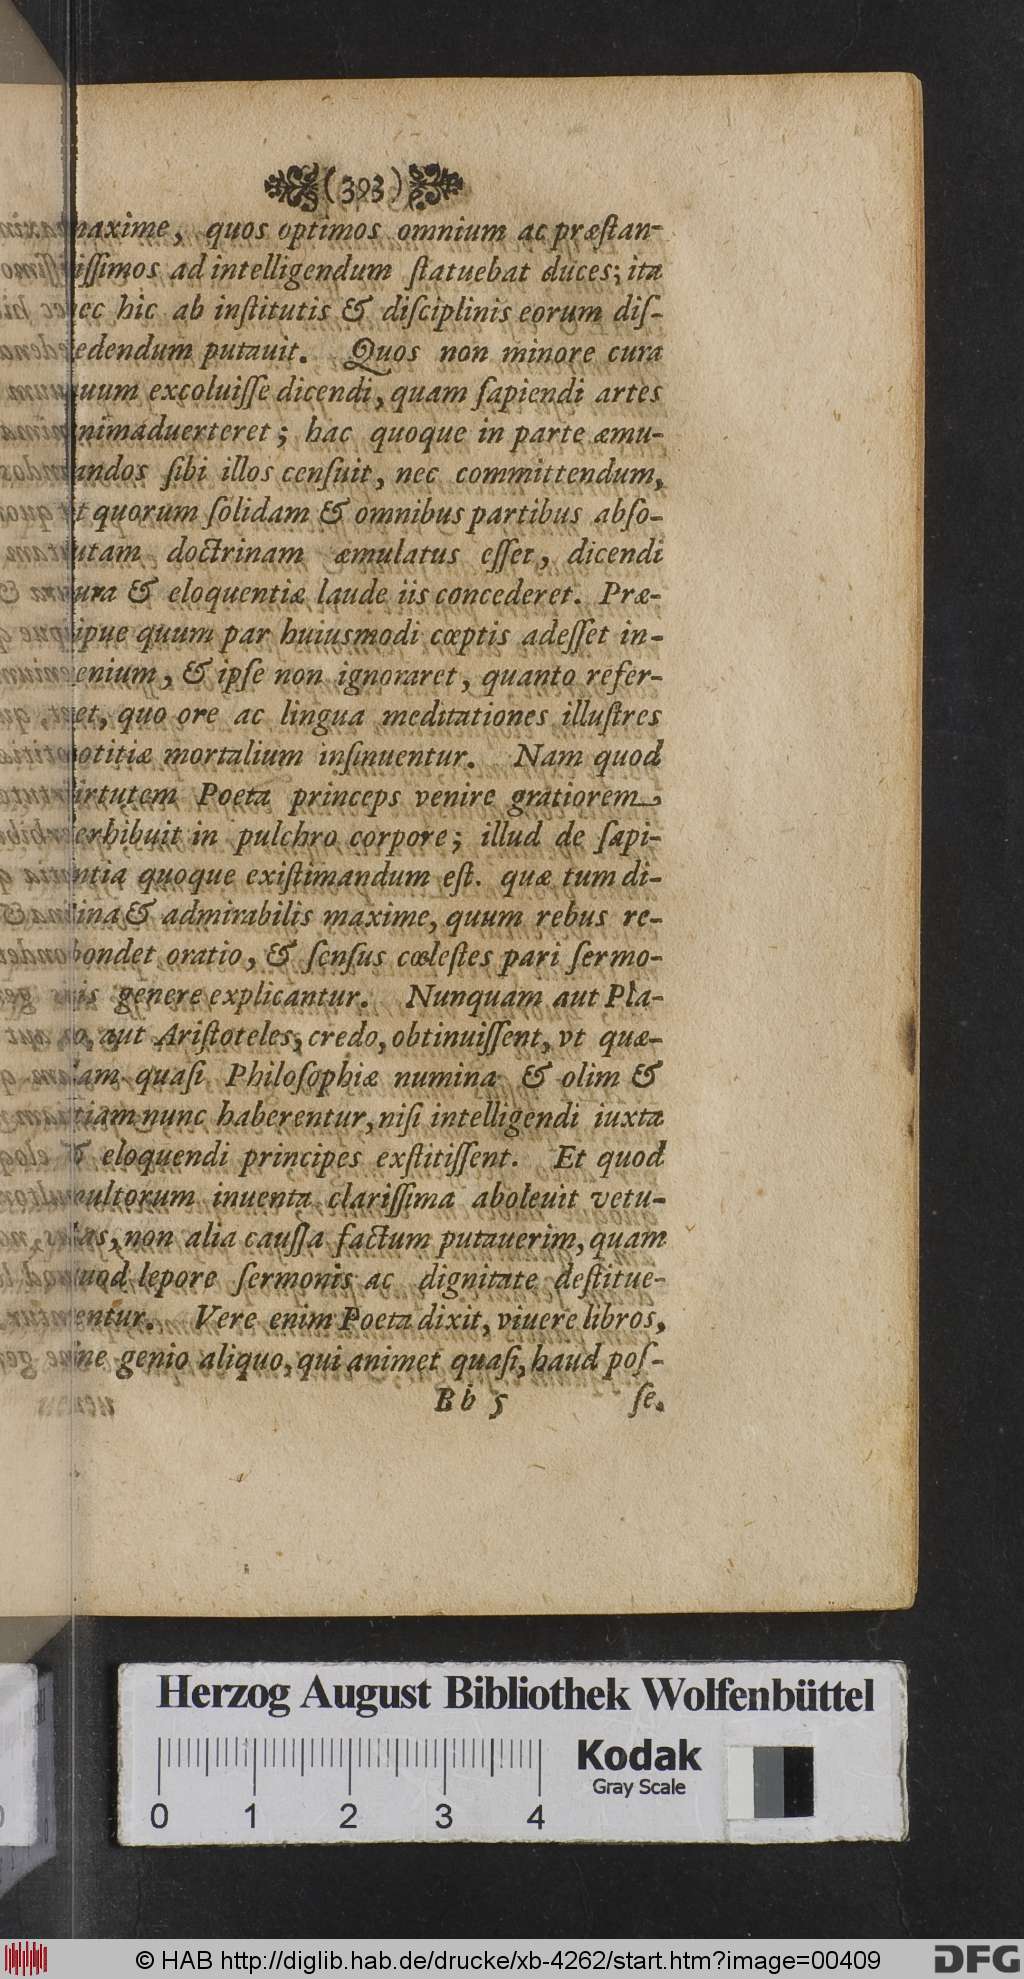 (393)
maxime, quos optimos omnium ac præstan-
tissimos ad intelligendum statuebat duces; ita
nec hic ab institutis & disciplinis eorum dis-
cedendum putauit. Quos non minore cura
quum excoluisse dicendi, quam sapiendi artes
animaduerteret; hac quoque in parte æmu-
landos sibi illos censuit, nec committendum,
vt quorum solidam & omnibus partibus abso-
lutam doctrinam æmulatus esset, dicendi
cura & eloquentiæ laude iis concederet. Præ-
cipue quum par huiusmodi cœptis adesset in-
genium, & ipse non ignoraret, quanto refer-
ret, quo ore ac lingua meditationes illustres
notitiæ mortalium insinuentur. Nam quod
virtutem Poeta princeps venire gratiorem
perhibuit in pulchro corpore; illud de sapi-
entia quoque existimandum est. quæ tum di-
uina & admirabilis maxime, quum rebus re-
spondet oratio, & sensus cœlestes pari sermo-
nis genere explicantur. Nunquam aut Pla-
to, aut Aristoteles, credo, obtinuissent, vt quæ-
dam quasi Philosophiæ numina & olim &
etiam nunc haberentur, nisi intelligendi iuxta
& eloquendi principes exstitissent. Et quod
multorum inuenta clarissima aboleuit vetu-
stas, non alia caussa factum putauerim, quam
quod lepore sermonis ac dignitate destitue-
rentur. Vere enim Poeta dixit, viuere libros,
sine genio aliquo, qui animet quasi, haud pos-
Bb 5 se.
Herzog August Bibliothek Wolfenbüttel
Kodak
Gray Scale
0 1 2 3 4
© HAB http://diglib.hab.de/drucke/xb-4262/start.htm?image=00409
DFG